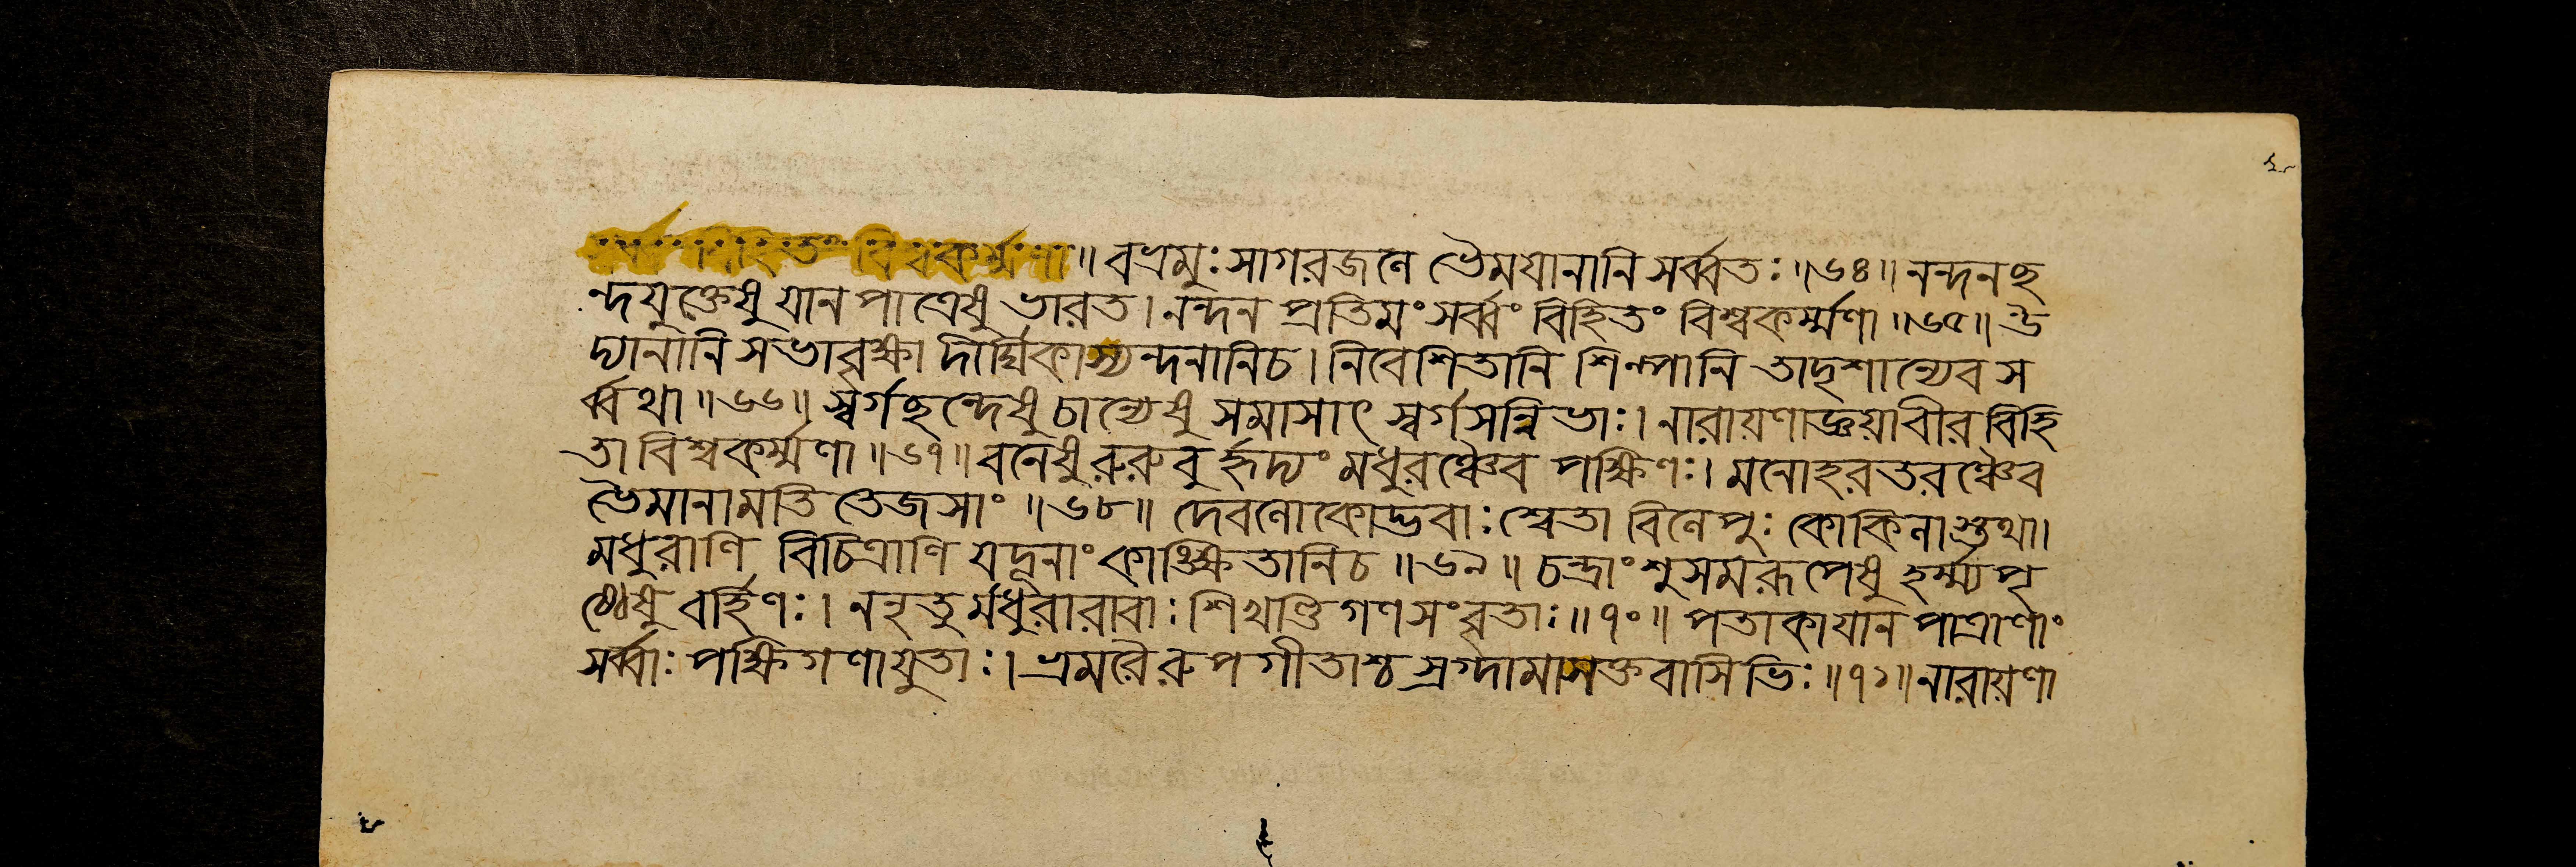 সর্ব্বং বিহিতং বিশ্বকর্ম্মণা॥ বভ্রমুঃ সাগরজলে ভৈমযানানি সর্ব্বতঃ॥৬৪॥ নন্দনছ
ন্দযুক্তেষু যান পাত্রেষু ভারত। নন্দন প্রতিমং সর্ব্বং বিহিতং বিশ্বকর্ম্মণা॥৬৫॥ উ
দ্যানানি সভাবৃক্ষা দীর্ঘিকাস্যন্দনানিচ। নিবেশিতানি শিল্পানি তাদৃশান্যেব স
র্ব্বথা॥৬৬॥ স্বর্গছন্দেষু চান্যেষু সমাসাৎ স্বর্গসন্নিভাঃ। নারায়ণাজ্ঞয়াবীর বিহি
তা বিশ্বকর্ম্মণা॥৬৭॥ বনেষু রুরুবুর্হৃদ্যং মধুরঞ্চৈব পক্ষিণঃ। মনোহরতরঞ্চৈব
ভৈমানামতি তেজসাং॥৬৮॥ দেবলোকোদ্ভবাঃ শ্বেতা বিলেপুঃ কোকিলাস্তথা।
মধুরাণি বিচিত্রাণি যদূনাং কাঙ্ক্ষিতানিচ॥৬৯॥ চন্দ্রাংশুসমরূপেষু হর্ম্ম্যপৃ
ষ্ঠেষু বর্হিণঃ। ননৃতুর্মধুরারাবাঃ শিখণ্ডিগণসংবৃতাঃ॥৭০॥ পতাকাযান পাত্রাণাং
সর্ব্বাঃ পক্ষিগণাযুতাঃ। ভ্রমরৈরুপগীতাশ্চ স্রগ্দামাসক্তবাসিভিঃ॥৭১॥ নারায়ণা